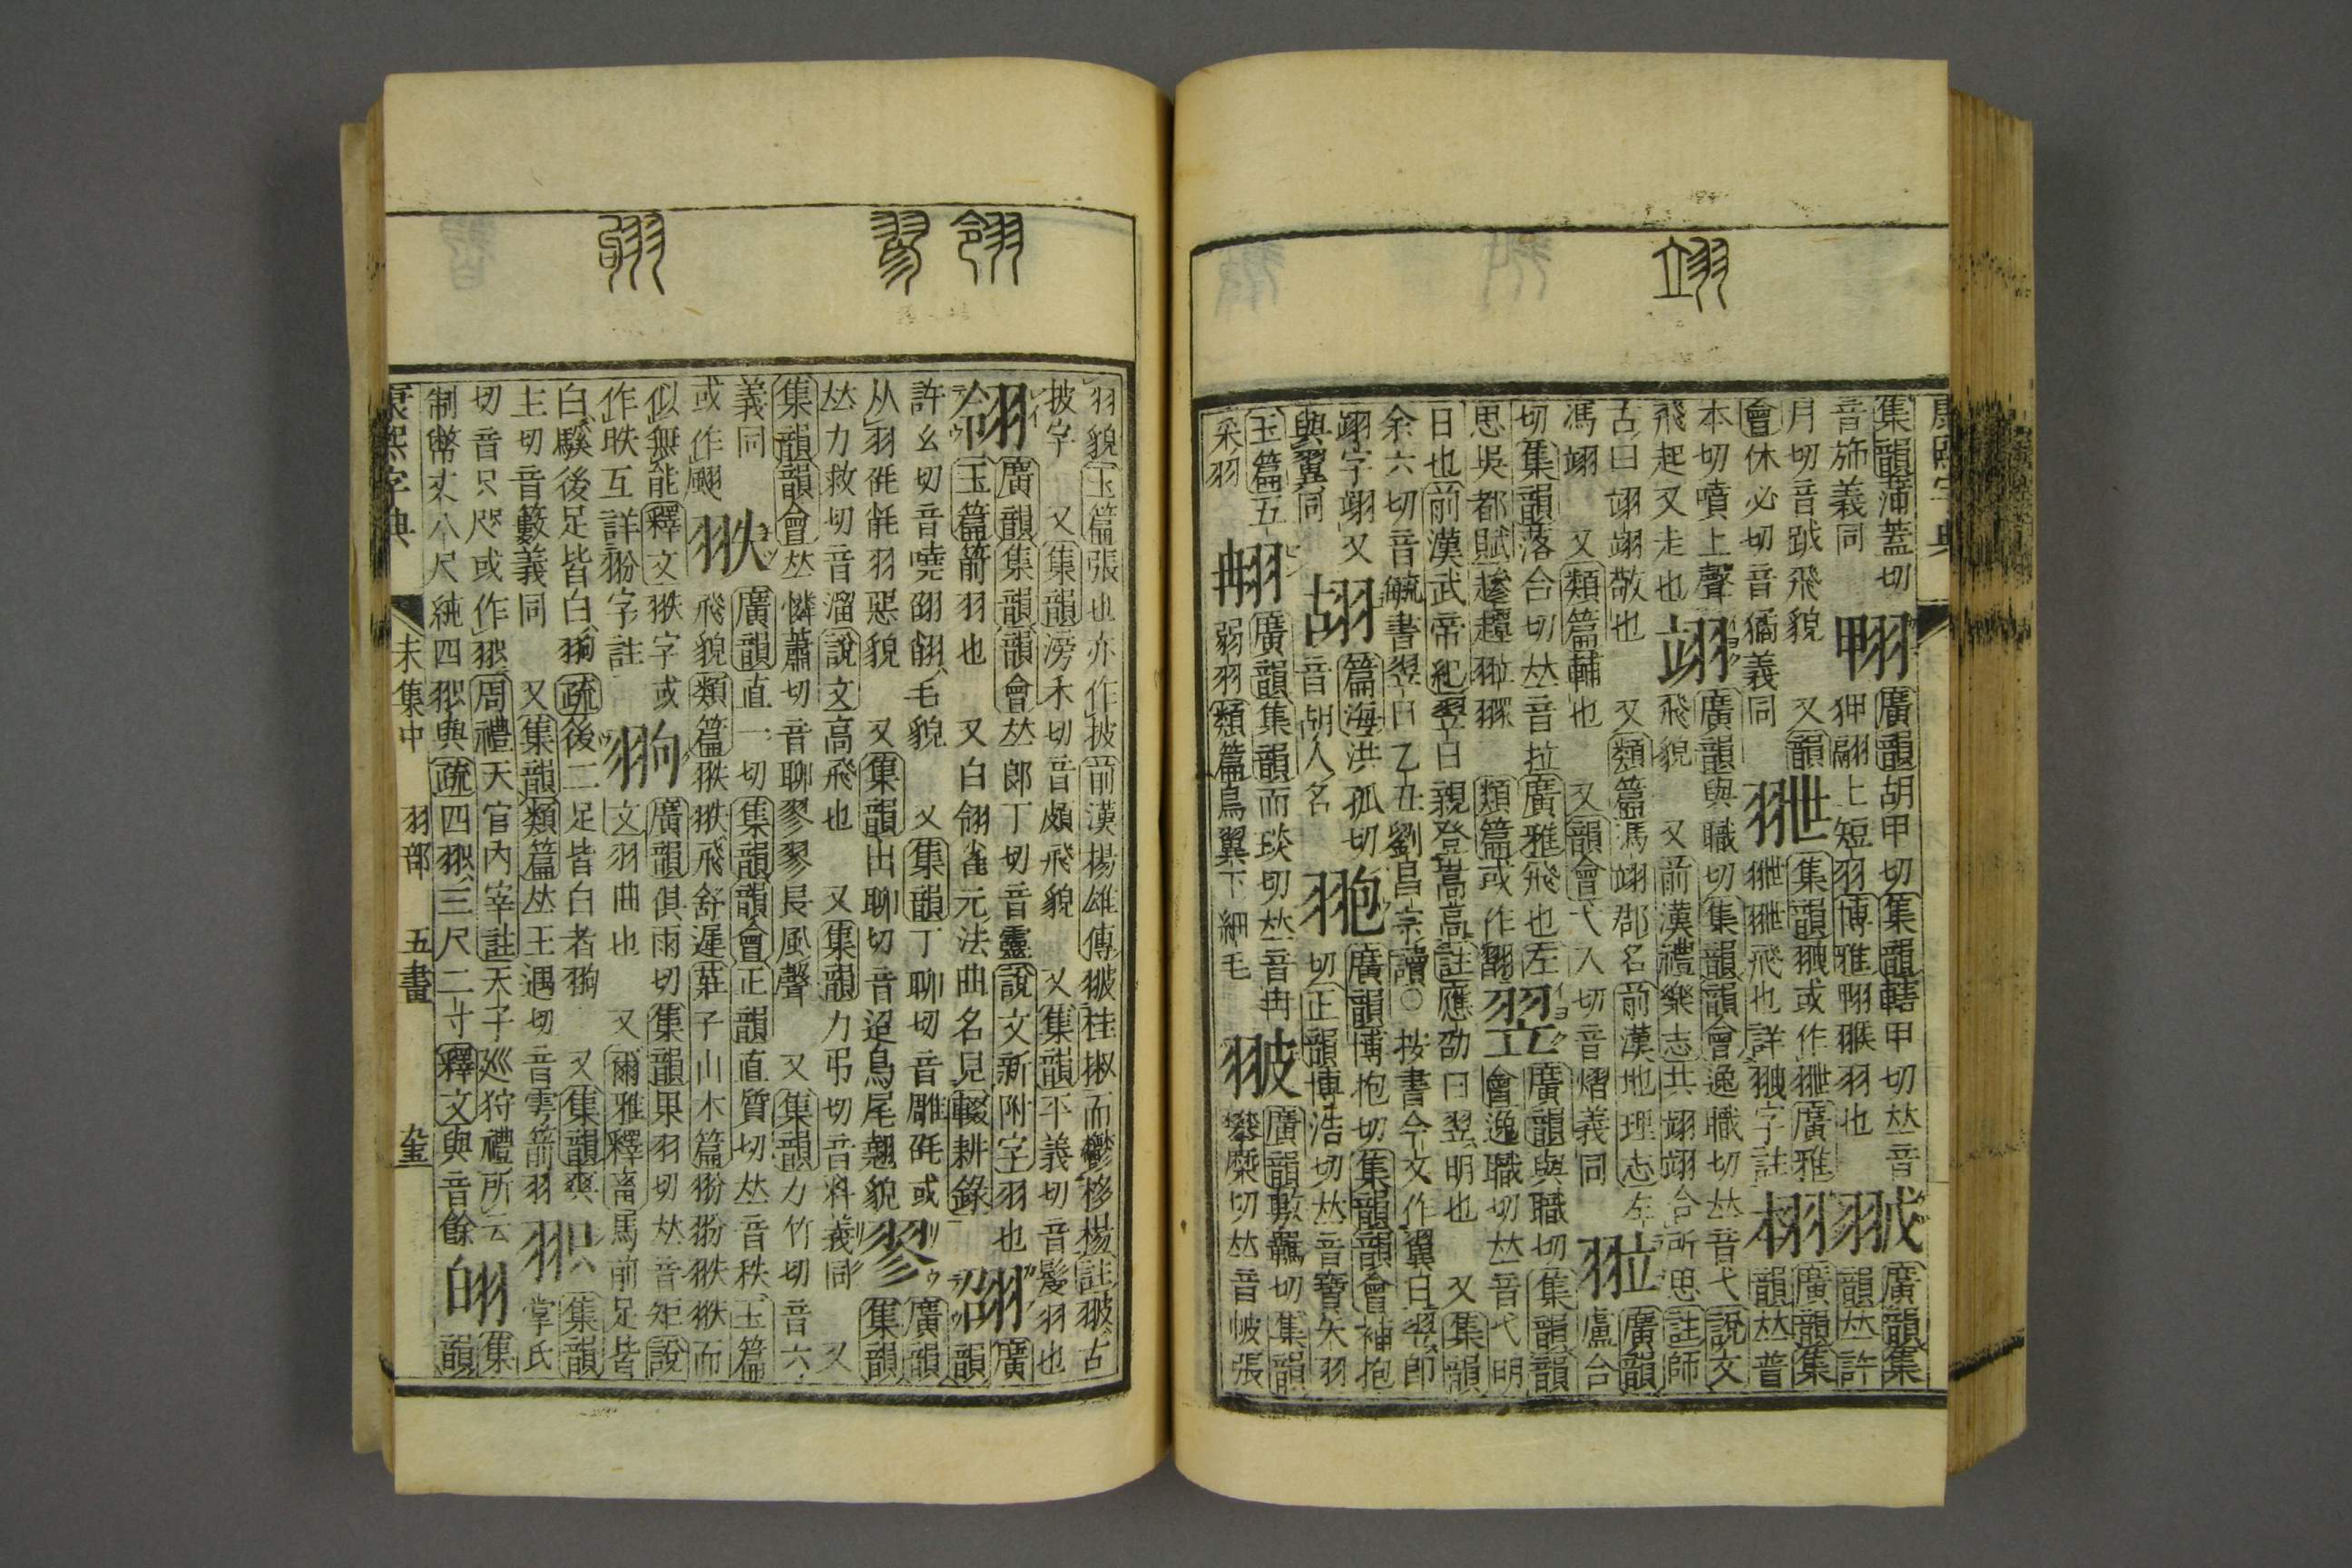 翊
康熙字典
集韻蒲蓋切 翈 廣韻胡甲切集韻轄甲切𠀤音 翍 廣韻集
音旆義同 翈翮上短羽博雅翈翭羽也 韻𠀤許
月切音䟠飛貌 又韻 集韻或作廣雅 廣韻集
會休必切音獝義同 飛也詳字註 韻𠀤普
本切噴上聲 翊 廣韻與職切集韻韻會逸職切𠀤音弋說文
飛起又走也 飛貌 又前漢禮樂志共翊翊合所思註師
古曰翊翊敬也 又類篇馮翊郡名前漢地理志左 翋 廣韻
馮翊 又類篇輔也 又韻會弋入切音熠義同 盧合
切集韻落合切𠀤音拉廣雅飛也左 翌 廣韻與職切集韻韻
思吳都賦趁趯翋𦒢 類篇或作 會逸職切𠀤音弋明
日也前漢武帝紀翌日親登嵩高註應劭曰翌明也 又集韻
余六切音毓書翌日乙丑劉昌宗讀○按書今文作翼日翌卽
翊字翊又 翓 篇海洪孤切 廣韻博抱切集韻韻會補抱
與翼同 音胡人名 切正韻博浩切𠀤音寶矢羽
玉篇五 䎃 廣韻集韻而琰切𠀤音冉 翍 廣韻敷羈切集韻
采羽 弱羽類篇鳥翼下細毛 攀糜切𠀤音帔張
翎 翏 翑
羽貌玉篇張也亦作披前漢揚雄傳翍桂椒而鬱栘楊註翍古
披字 又集韻滂禾切音頗飛貌 又集韻平義切音髲羽也
翎 廣韻集韻韻會𠀤郞丁切音靈說文新附字羽也 䎄 廣
玉篇箭羽也 又白翎雀元法曲名見輟耕錄 韻
許幺切音嘵䎄䎗毛貌 又集韻丁聊切音雕毦或 翏 廣韻
从羽毦毦羽惡貌 又集韻田聊切音迢鳥尾翹貌 集韻
𠀤力救切音溜說文高飛也 又集韻力弔切音料義同 又
集韻韻會𠀤憐蕭切音聊翏翏長風聲 又集韻力竹切音六
義同 翐 廣韻直一切集韻韻會正韻直質切𠀤音秩玉篇
或作䬍 飛貌類篇翐翐飛舒遲莊子山木篇翂翂翐翐而
似無能釋文翐字或 翑 廣韻俱雨切集韻果羽切𠀤音矩說
作昳互詳翂字註 文羽曲也 又爾雅釋畜馬前足皆
白騱後足皆白翑疏後二足皆白者翑 又集韻 集韻
主切音籔義同 又集韻類篇𠀤王遇切音雩箭羽 掌氏
切音只咫或作周禮天官內宰註天子巡狩禮所云 集
制幣丈八尺純四與疏四三尺二寸釋文與音餘 韻
康熙字典 未集中 羽部 五畫